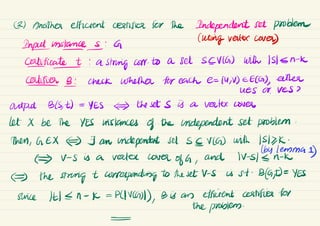 (2) Another efficient certifier for the Independent set problem
(using vertex cover)
Input instance s : G
Certificate t : a string corr. to a set S⊆V(G) with |S| ≤ n-k
Certifier B : check whether for each e=(u,v) ∈ E(G), either
u∈S or v∈S?
output B(s,t) = YES ⟺ the set S is a vertex cover
let X be the YES instances of the independent set problem.
Then, G∈X ⟺ ∃ an independent set S ⊆ V(G) with |S|≥k.
(by lemma 1)
⟺ V-S is a vertex cover of G, and |V-S| ≤ n-k
⟺ the string t corresponding to the set V-S is s.t. B(G,t) = YES
since |t| ≤ n-k = P(|V(G)|), B is an efficient certifier for
the problem.